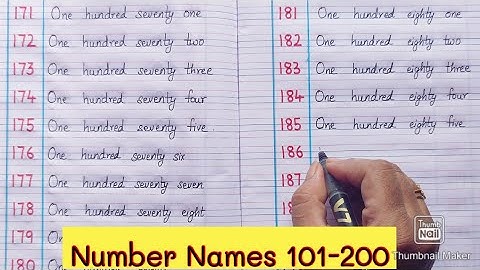 171 One hundred seventy one
172 One hundred seventy two
173 One hundred seventy three
174 One hundred seventy four
175 One hundred seventy five.
176 One hundred seventy six
177 One hundred seventy seven
178 One hundred seventy eight
179 On
180 One hundred
181 One hundred eighty one
182 One hundred eighty two
183 One hundred eighty three
184 One hundred eighty four
185 One hundred eighty five
186
187
188
V7
Thumb
Nail
Thumbnail Maker
Number Names 101-200